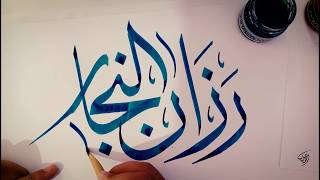 رَزَان النجار